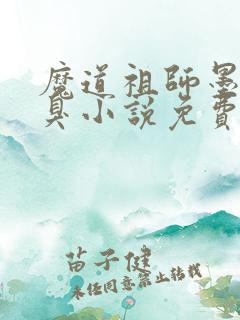 魔道祖師墨
臭小説免費
苗子健
未经同意禁止转载